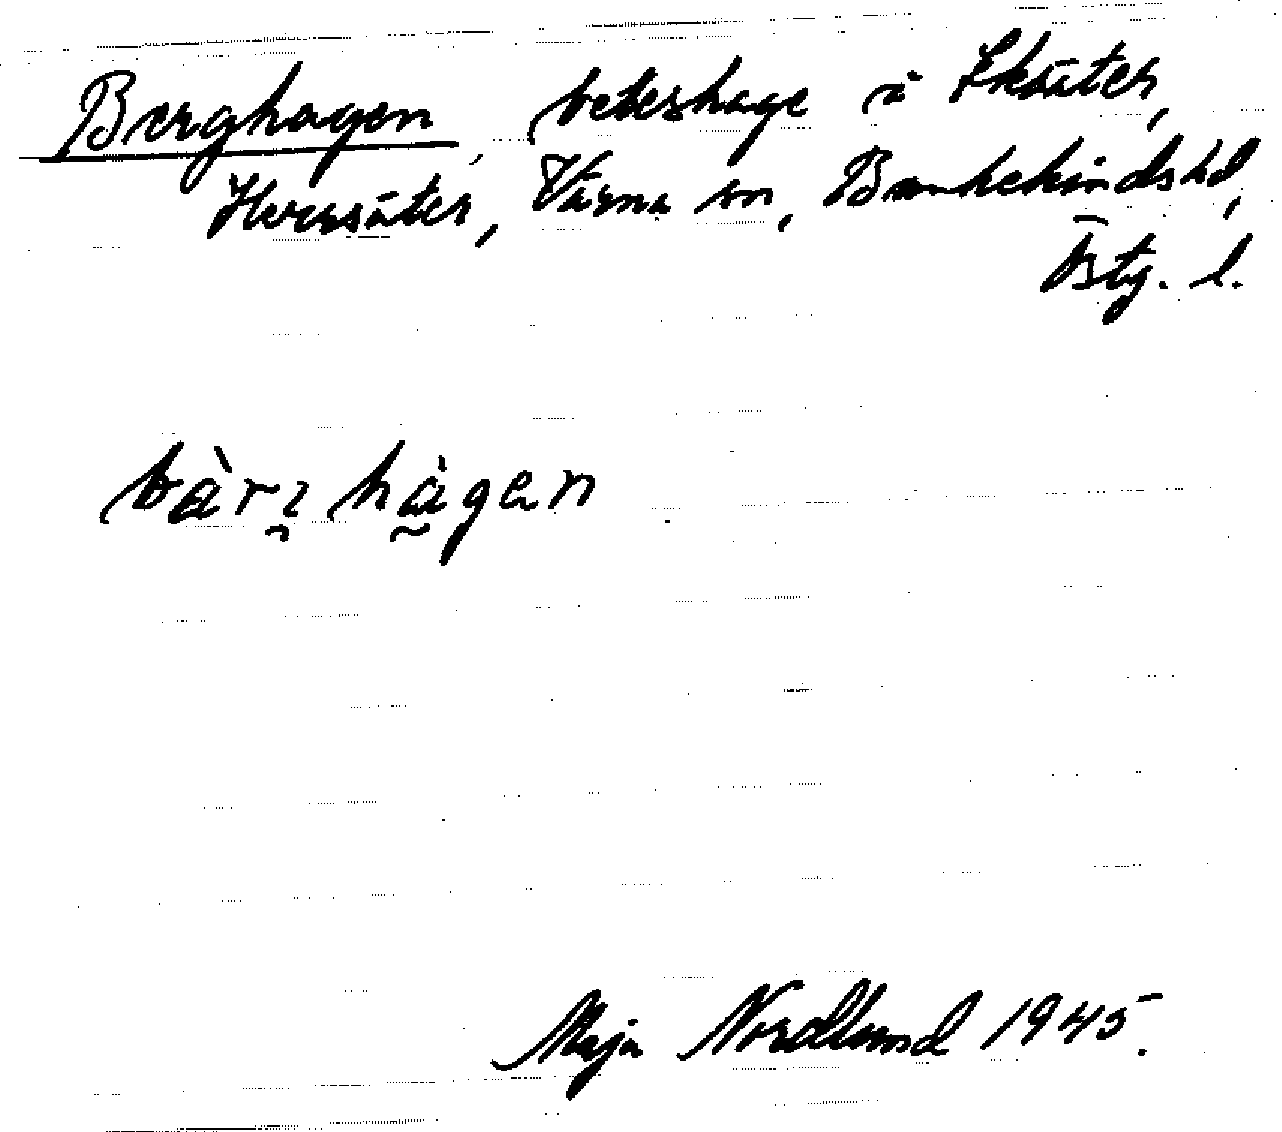 Berghagen, beteshage i Skäter,
Herrsäter, Värna sn, Bankekinds hd,
Östg. l.
bàrɩ hàgen
Maja Nordlund 1945.